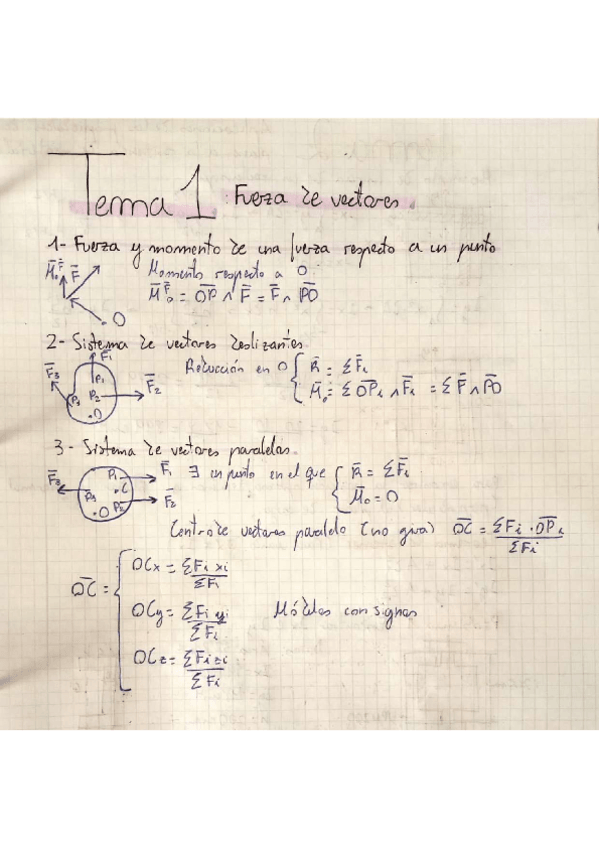 Tema 1: Fuerza de vectores.
1- Fuerza y momento de una fuerza respecto a un punto
M̄₀^F̄ F̄ O
Momento respecto a O
M̄₀^F̄ = O̅P̅ ∧ F̄ = F̄ ∧ P̅O̅
2- Sistema de vectores deslizantes
F̄₁ F̄₃ P₁ F̄₂ P₃ P₂ O
Reducción en O { R̄ = ΣF̄i
M̄₀ = ΣO̅P̅i ∧ F̄i = ΣF̄ ∧ P̅O̅
3- Sistema de vectores paralelos.
P₁ F̄₁ F̄₃ P₃ C O P₂ F̄₂
∃ un punto en el que { R̄ = ΣF̄i
M̄₀ = O
Centro de vectores paralelo (no gira) O̅C̅ = ΣFi · O̅P̅i / ΣFi
O̅C̅ = { OCx = ΣFi xi / ΣFi
OCy = ΣFi yi / ΣFi
Módulos con signos
OCz = ΣFi zi / ΣFi